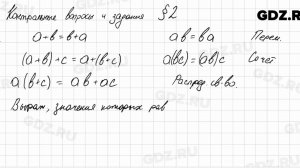 Контрольные вопросы и задания §2
GDZ.RU
a+b=b+a ab=ba Перем.
(a+b)+c=a+(b+c) a(bc)=(ab)c Сочет.
a(b+c)=ab+ac Распред св-во.
Выраж, значения которых рав